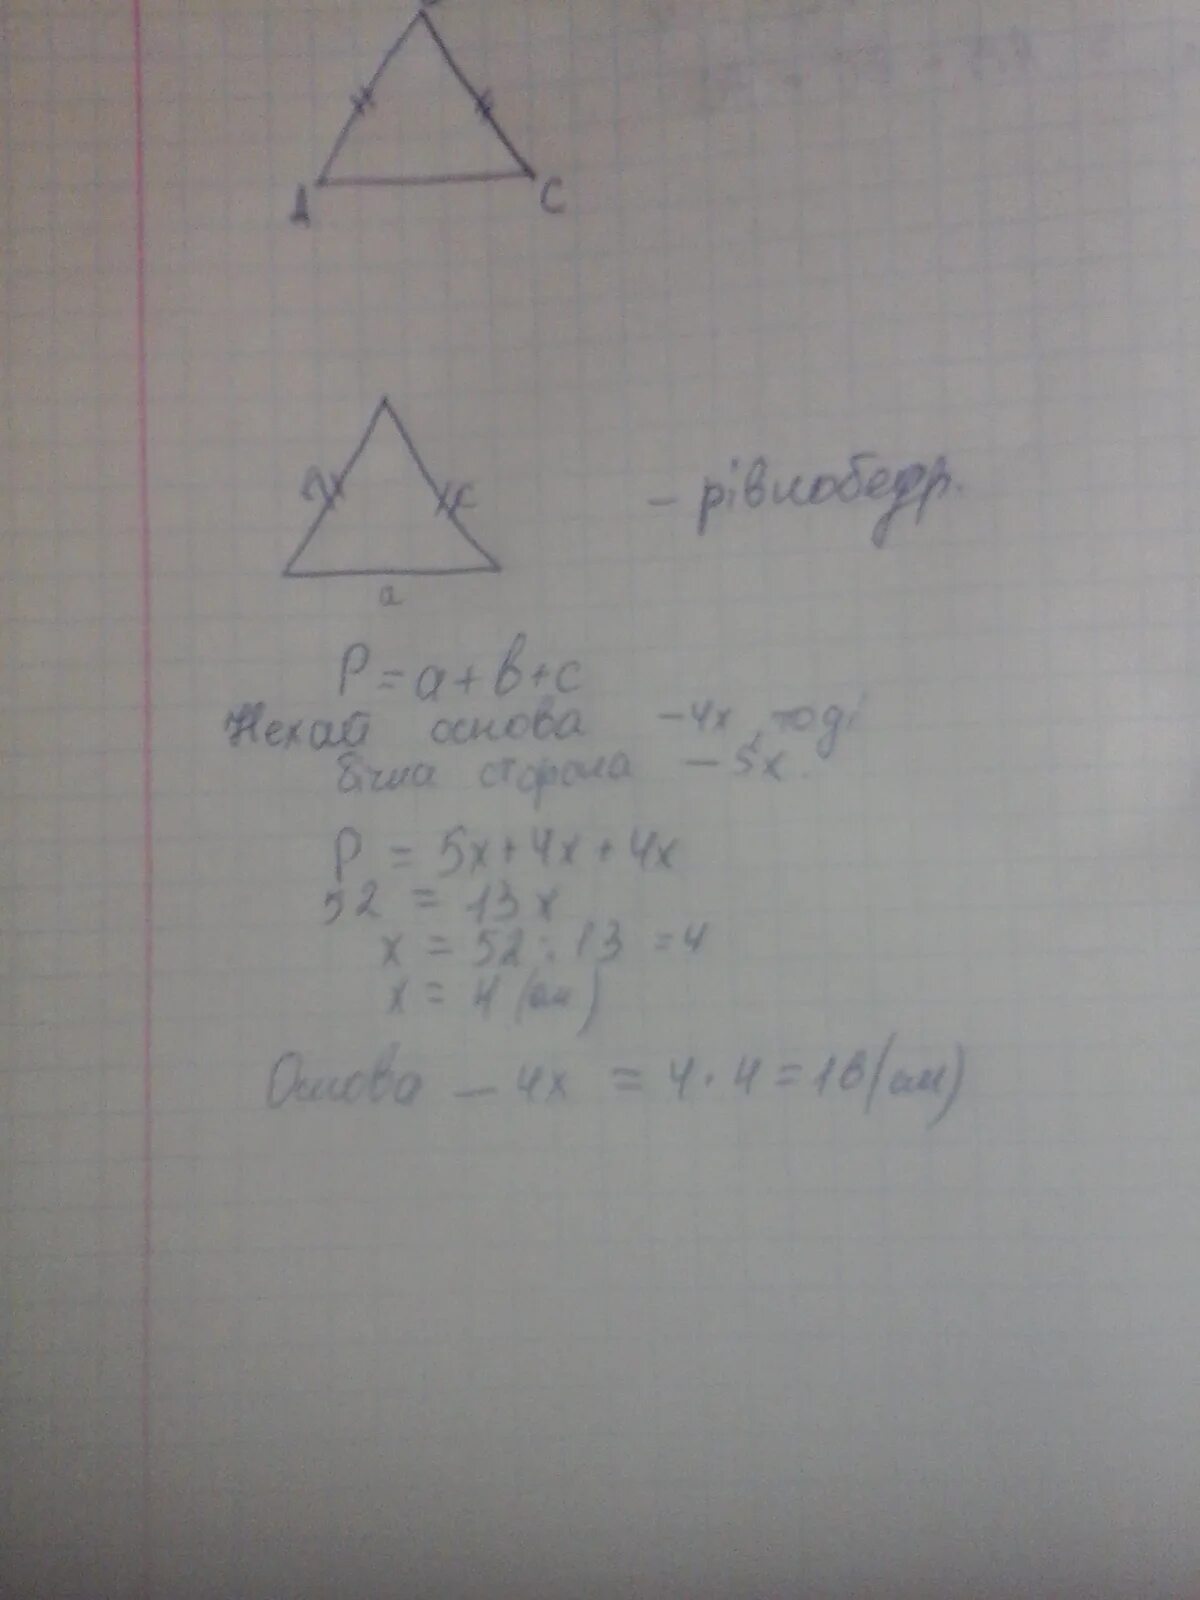 A C
- рівнобедр.
c
a
P = a + b + c
Нехай основа - 4x, тоді
бічна сторона - 5x.
P = 5x + 4x + 4x
52 = 13x
x = 52 : 13 = 4
x = 4 (см)
Основа - 4x = 4 · 4 = 16 (см)